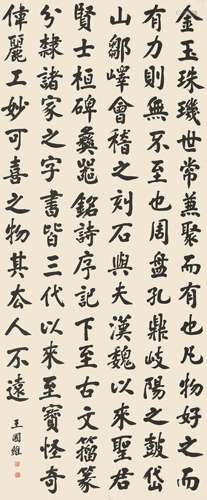 金玉珠璣世常兼聚而有也凡物好之而
有力則無不至也周盤孔鼎岐陽之鼓岱
山鄒嶧會稽之刻石與夫漢魏以來聖君
賢士桓碑彝器銘詩序記下至古文籀篆
分隸諸家之字書皆三代以來至寶怪奇
偉麗工妙可喜之物其去人不遠
王國維